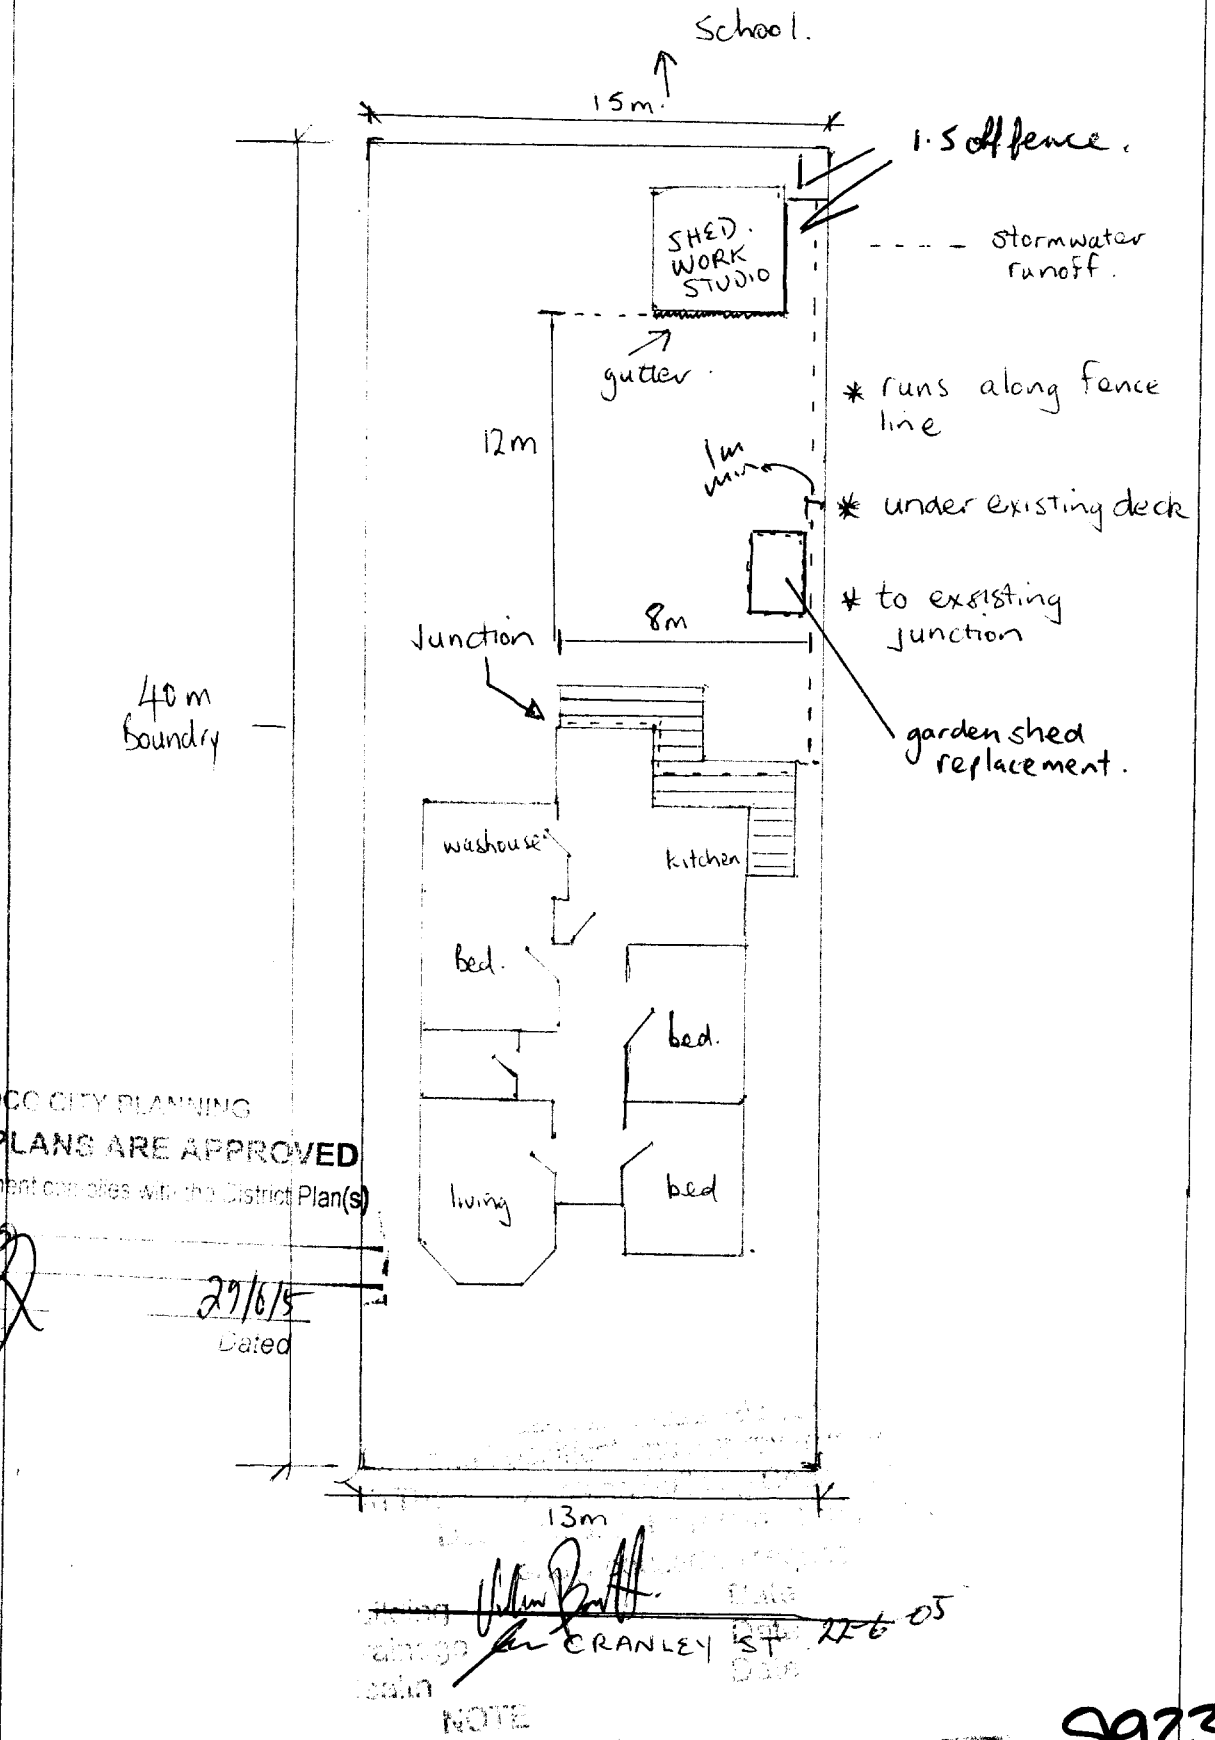 School.
15m.
1.5 off fence.
SHED.
WORK
STUDIO
- - - - stormwater
runoff.
gutter.
* runs along fence
line
12m
1m
min
* under existing deck
* to exsisting
junction
8m
Junction
40m
Boundry
garden shed
replacement.
washouse
kitchen
Bed.
bed.
CITY PLANNING
PLANS ARE APPROVED
complies with the District Plan(s)
living
bed
29/6/5
Dated
13m
Date
CRANLEY ST
22-6-05
Date
Date
NOTE